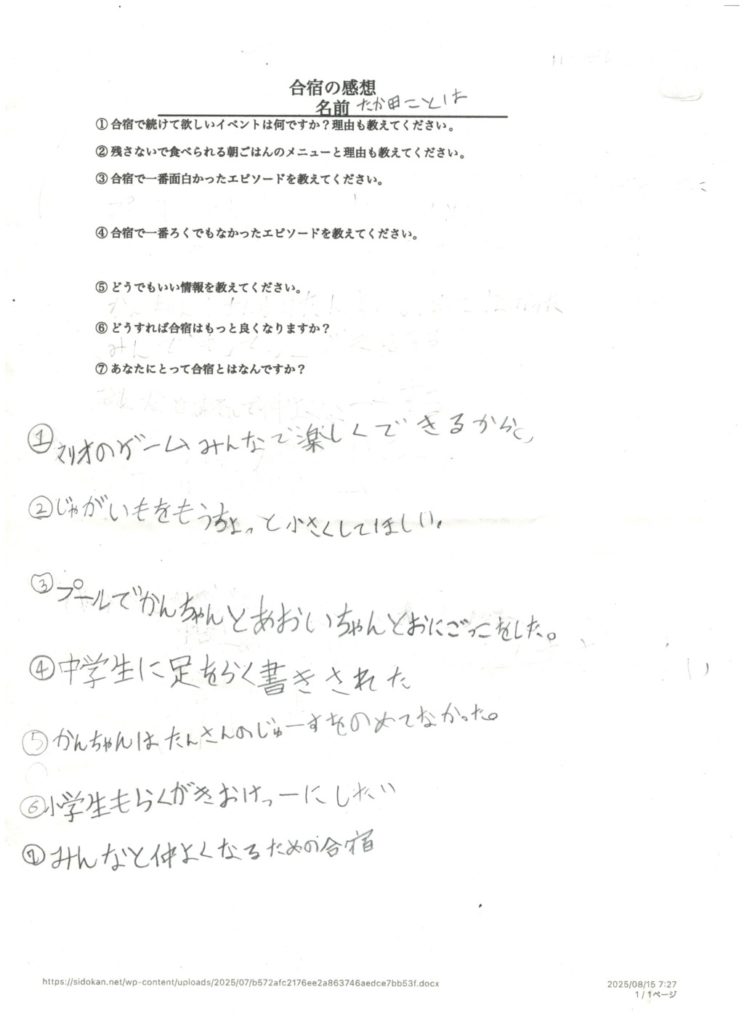 合宿の感想
名前 たか田ことは
① 合宿で続けて欲しいイベントは何ですか？理由も教えてください。
② 残さないで食べられる朝ごはんのメニューと理由も教えてください。
③ 合宿で一番面白かったエピソードを教えてください。
④ 合宿で一番ろくでもなかったエピソードを教えてください。
⑤ どうでもいい情報を教えてください。
⑥ どうすれば合宿はもっと良くなりますか？
⑦ あなたにとって合宿とはなんですか？
① マリオのゲームみんなで楽しくできるから。
② じゃがいもをもうちょっと小さくしてほしい。
③ プールでかんちゃんとあおいちゃんとおにごっこをした。
④ 中学生に足をらく書きされた
⑤ かんちゃんはたんさんのじゅーすをのめてなかった。
⑥ 小学生もらくがきおけっーにしたい
⑦ みんなと仲よくなるための合宿
https://sidokan.net/wp-content/uploads/2025/07/b572afc2176ee2a863746aedce7bb53f.docx
2025/08/15 7:27
1 / 1ページ